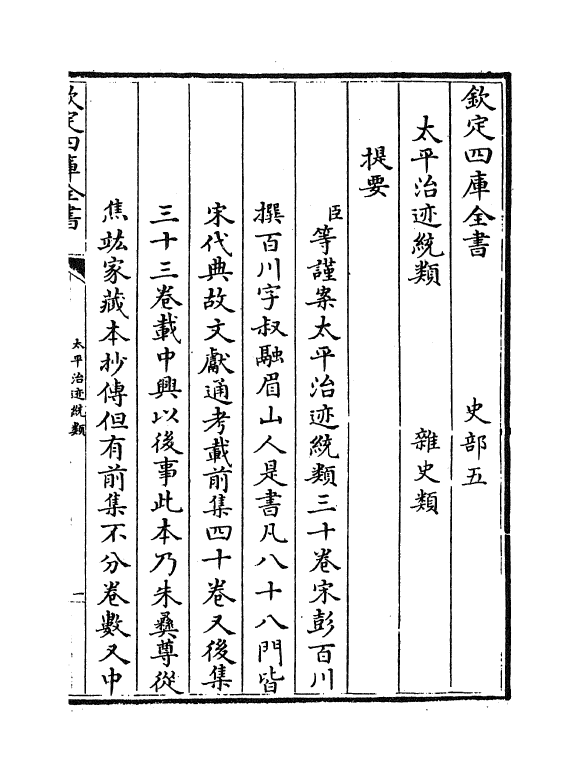 欽定四庫全書　史部五
太平治迹統類　雜史類
提要
臣等謹案太平治迹統類三十卷宋彭百川
撰百川字叔融眉山人是書凡八十八門皆
宋代典故文獻通考載前集四十卷又後集
三十三卷載中興以後事此本乃朱彞尊從
焦竑家藏本抄傳但有前集不分卷數又中
欽定四庫全書
太平治迹統類
一